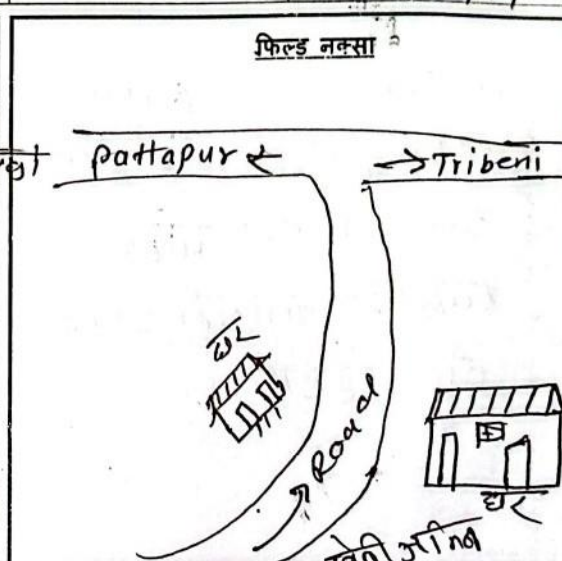 फिल्ड नक्सा
pattapur
Tribeni
घर
Road
घर